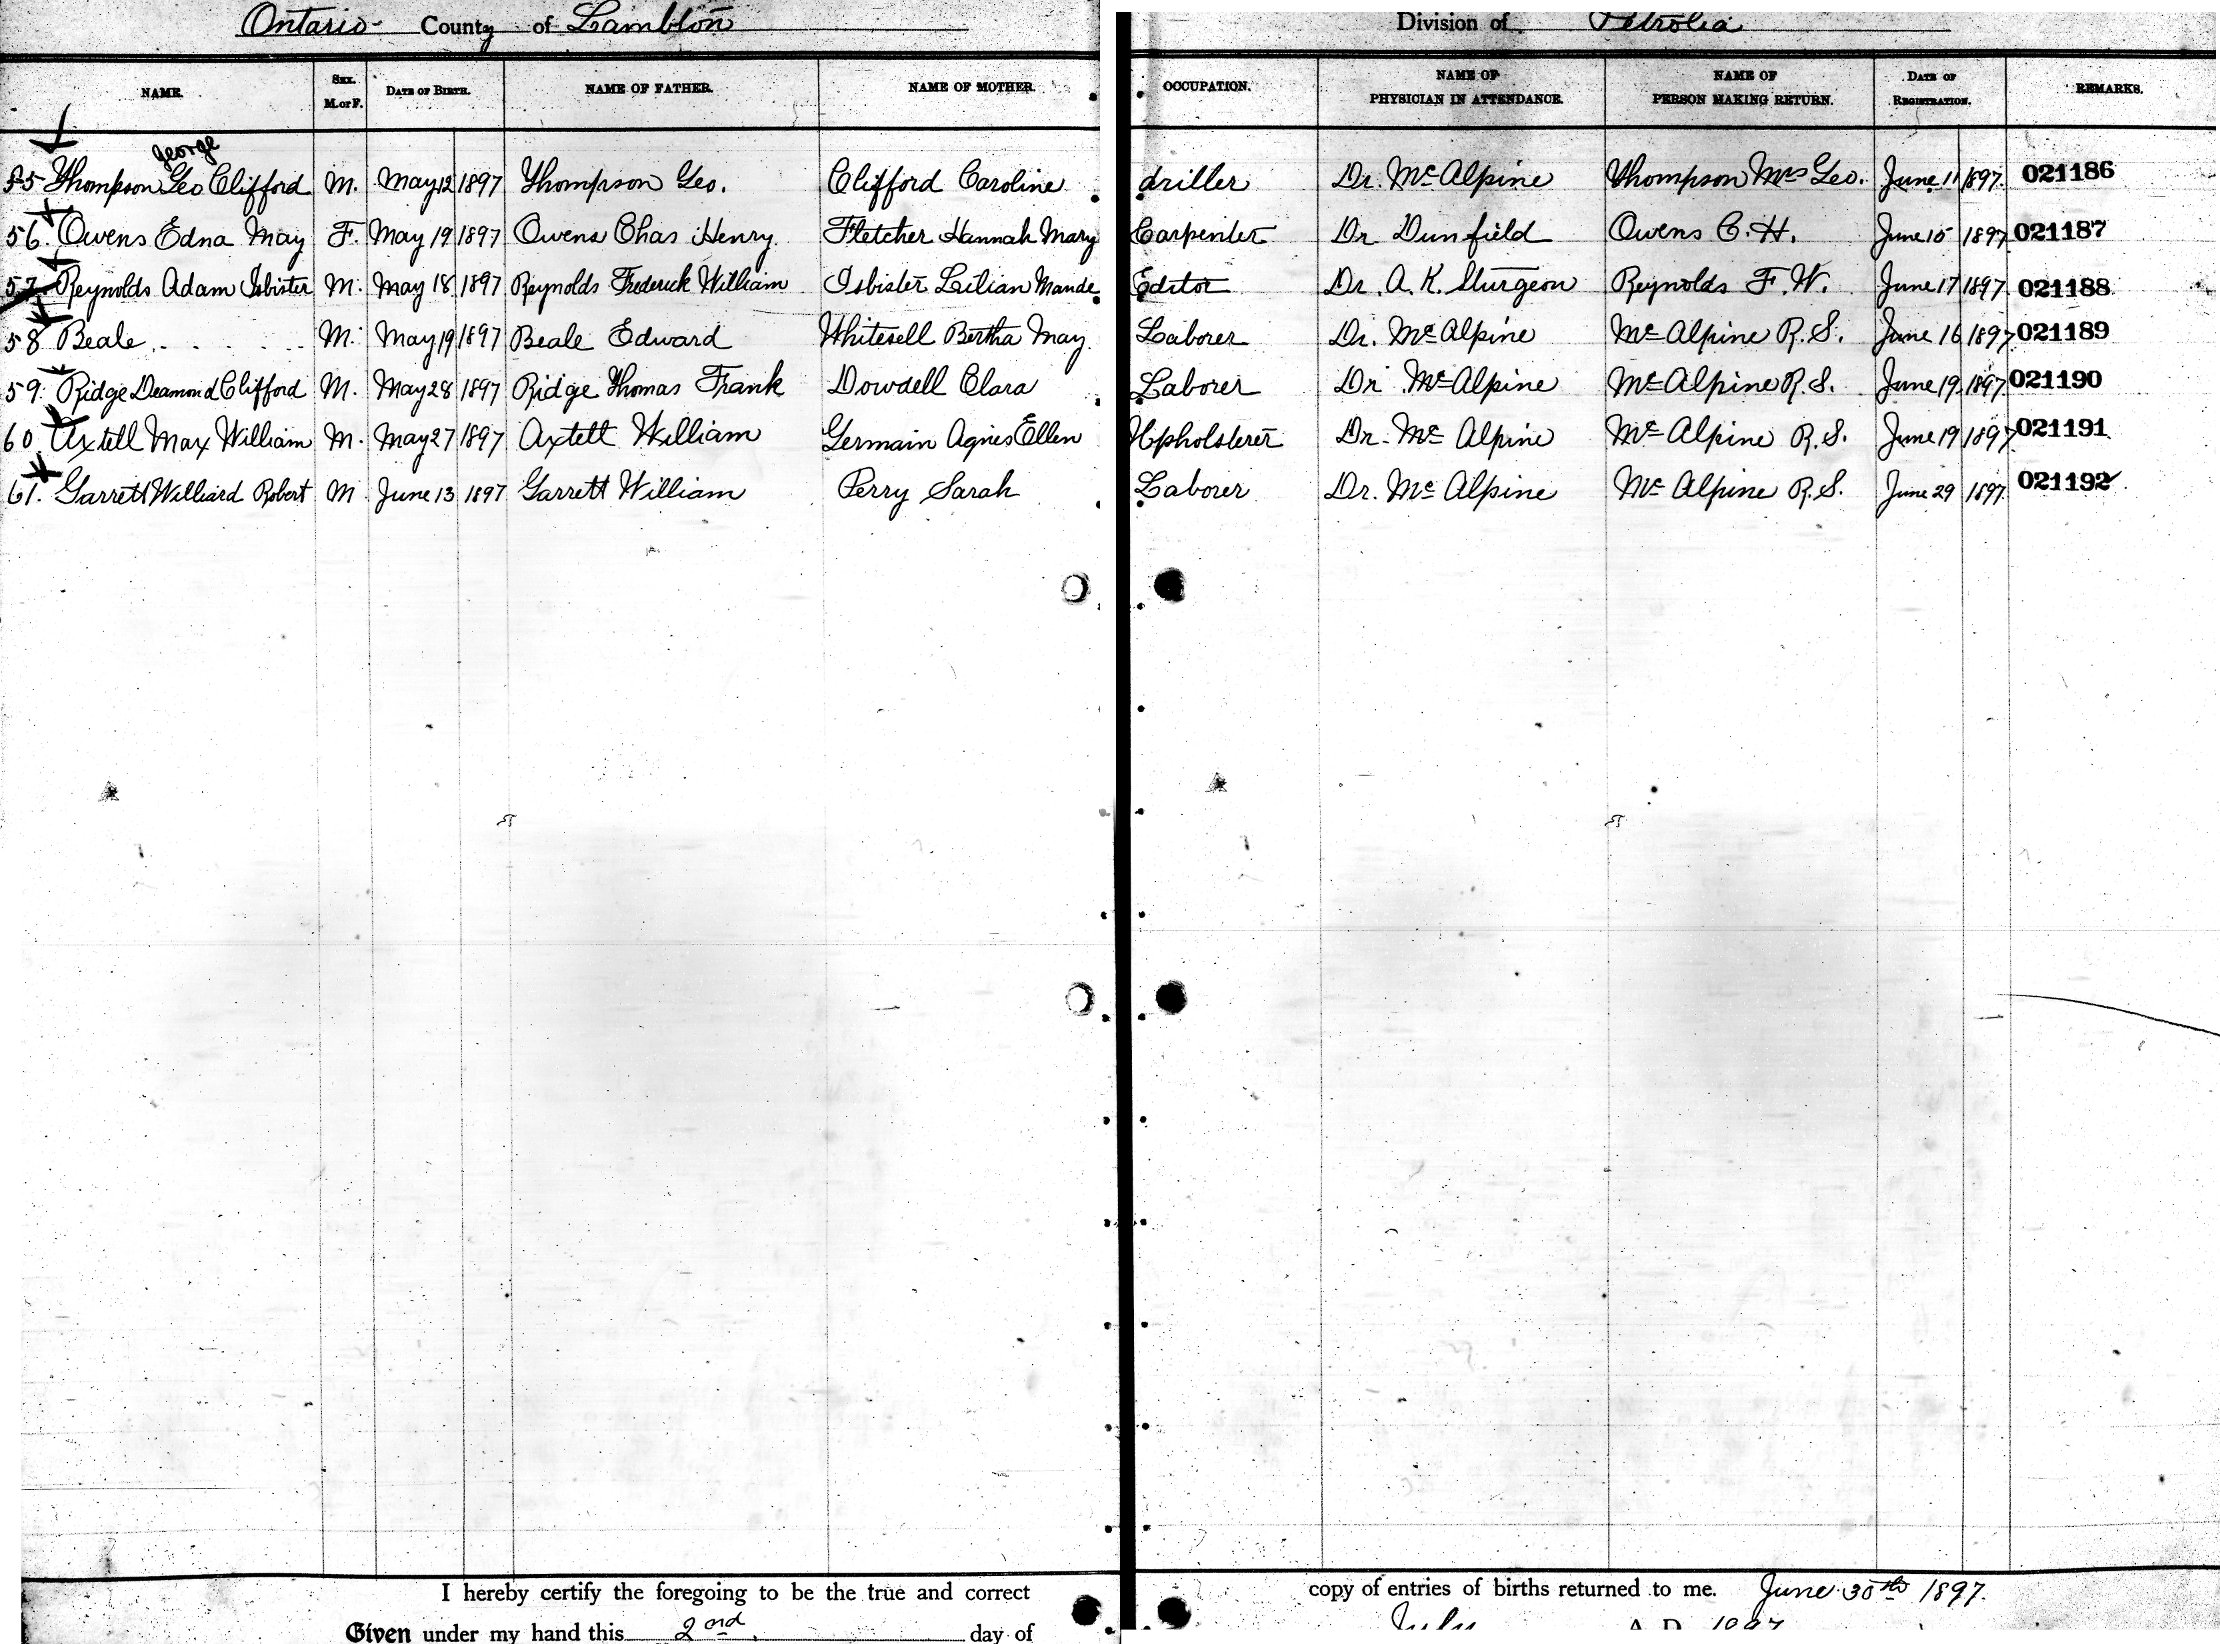 Ontario County of Lambton Division of Petrolia
NAME. SEX. M. or F. DATE OF BIRTH. NAME OF FATHER. NAME OF MOTHER. OCCUPATION. NAME OF PHYSICIAN IN ATTENDANCE. NAME OF PERSON MAKING RETURN. DATE OF REGISTRATION. REMARKS.
George
55 Thompson Geo Clifford M. May 12 1897 Thompson Geo. Clifford Caroline driller Dr. McAlpine Thompson Mrs Geo. June 11 1897. 021186
56. Owens Edna May F. May 19 1897 Owens Chas Henry. Fletcher Hannah Mary Carpenter Dr Dunfield Owens C. H. June 15 1897 021187
57 Reynolds Adam Isbister M. May 18 1897 Reynolds Frederick William Isbister Lilian Maude Editor Dr. A. K. Sturgeon Reynolds F. W. June 17 1897. 021188
58 Beale M. May 19 1897 Beale Edward Whitesell Bertha May. Laborer Dr. McAlpine McAlpine R. S. June 16 1897 021189
59. Ridge Deamond Clifford M. May 28 1897 Ridge Thomas Frank Dowdell Clara Laborer Dr McAlpine McAlpine R. S. June 19 1897. 021190
60 Axtell Max William M. May 27 1897 Axtell William Germain Agnes Ellen Upholsterer Dr. McAlpine McAlpine R. S. June 19 1897 021191
61. Garrett Williard Robert M June 13 1897 Garrett William Perry Sarah Laborer Dr. McAlpine McAlpine R. S. June 29 1897. 021192
I hereby certify the foregoing to be the true and correct copy of entries of births returned to me. June 30th 1897.
Given under my hand this 2nd. day of July A. D. 1897